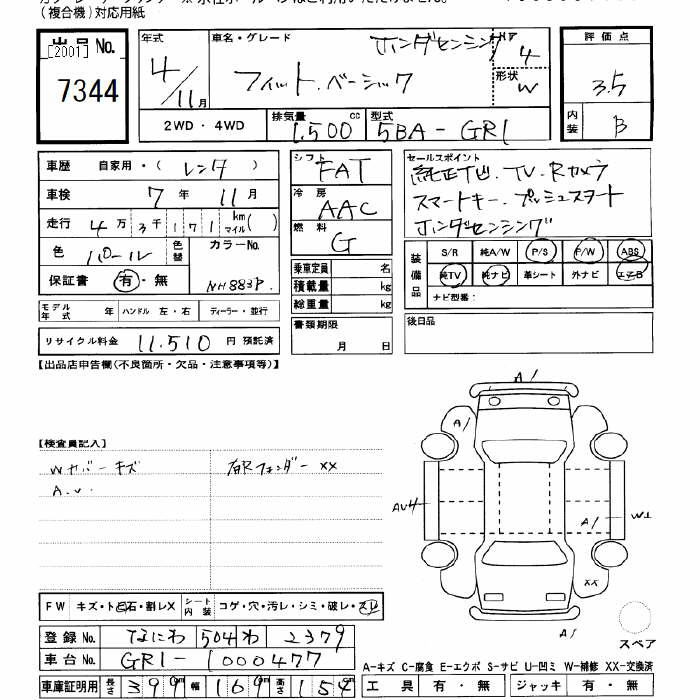 (複合機)対応用紙
出品 No. [2001] 7344
年式 4/11月
車名・グレード フィット.ベーシック ホンダセンシング
ドア 4
形状 W
2WD・4WD
排気量 1.500 cc
型式 5BA-GR1
評価点 3.5
内装 B
車歴 自家用・(レンタ)
車検 7年 11月
走行 4万3千171 km マイル( )
色 パール 色替 カラーNo. NH883P.
保証書 有・無
モデル年式 年 ハンドル 左・右 ディーラー・並行
リサイクル料金 11.510 円 預託済
シフト FAT
冷房 AAC
燃料 G
乗車定員 名
積載量 kg
総重量 kg
書類期限 月 日
セールスポイント
純正ナビ.TV.Rカメラ
スマートキー.プッシュスタート
ホンダセンシング
装備品 S/R 純A/W P/S P/W ABS
純TV 純ナビ 革シート 外ナビ エアB
ナビ型番:
後日品
【出品店申告欄(不良箇所・欠品・注意事項等)】
【検査員記入】
Wカバーキズ 右Rフェンダーxx
A.U.
A1
A1
AU4
W1
A1
XX
A1
スペア
FW キズ・ト石・割レX シート内装 コゲ・穴・汚レ・シミ・破レ・スレ
登録 No. なにわ 504 わ 2379
車台 No. GR1-1000477
車庫証明用 長さ 399 幅 169 高さ 154
A-キズ C-腐食 E-エクボ S-サビ U-凹ミ W-補修 XX-交換済
工具 有・無 ジャッキ 有・無